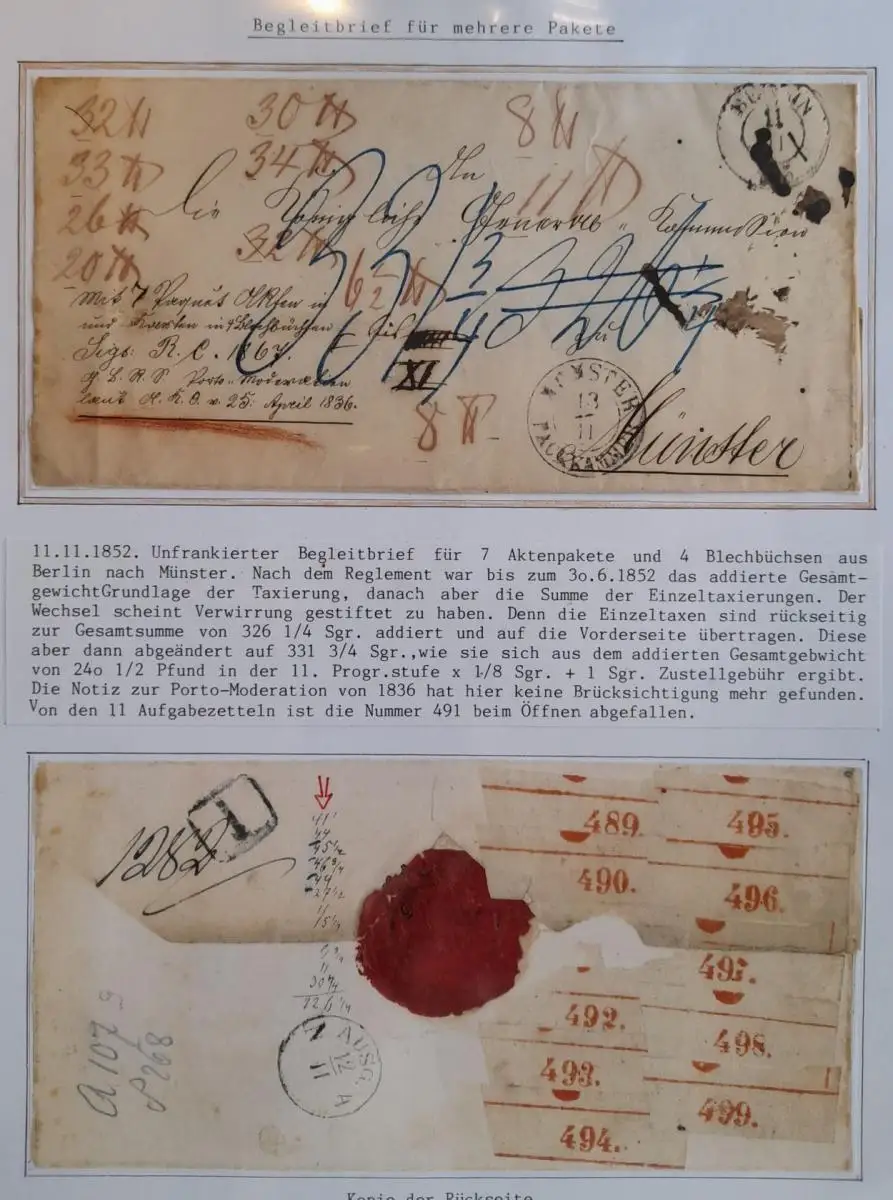 Begleitbrief für mehrere Pakete
32 ℔ 30 ℔ 8 ℔
33 ℔ 34 ℔ 11 ℔
26 ℔ 32 ℔
20 ℔ 6 1/2 ℔
8 ℔
BERLIN
11
An
Die Königliche General-Kommission
zu
Münster
Mit 7 Paquet Akten in
und Karten in 4 Blechbüchsen
Sign: R. C. 1867.
Porto-Moderation
laut A. K. O. v. 25. April 1836.
XI
MÜNSTER
13
11
PACKKAMMER
11.11.1852. Unfrankierter Begleitbrief für 7 Aktenpakete und 4 Blechbüchsen aus
Berlin nach Münster. Nach dem Reglement war bis zum 3o.6.1852 das addierte Gesamt-
gewichtGrundlage der Taxierung, danach aber die Summe der Einzeltaxierungen. Der
Wechsel scheint Verwirrung gestiftet zu haben. Denn die Einzeltaxen sind rückseitig
zur Gesamtsumme von 326 1/4 Sgr. addiert und auf die Vorderseite übertragen. Diese
aber dann abgeändert auf 331 3/4 Sgr.,wie sie sich aus dem addierten Gesamtgebwicht
von 24o 1/2 Pfund in der 11. Progr.stufe x 1/8 Sgr. + 1 Sgr. Zustellgebühr ergibt.
Die Notiz zur Porto-Moderation von 1836 hat hier keine Brücksichtigung mehr gefunden.
Von den 11 Aufgabezetteln ist die Nummer 491 beim Öffnen abgefallen.
1282
1
A 107
268
AUSG.
12
11
489.
490.
492.
493.
494.
495.
496.
497.
498.
499.
Kopie der Rückseite